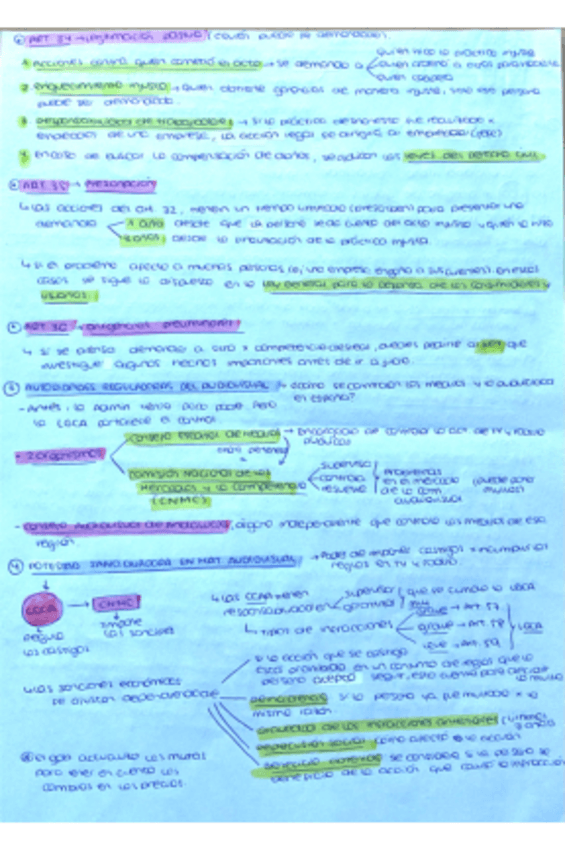 ART 34 → legitimación pasiva (contra quién puede se demandado).
1. Acciones contra quien cometió el acto → se demanda a
quien hizo la práctica injusta
quien ordenó a otros para hacerla
quien coopera
2. enriquecimiento injusto → quien obtiene ganancias de manera injusta, solo esa persona
puede ser demandada.
3. → si la práctica deshonesta fue realizada x
empleados de una empresa, la acción legal se dirigirá al empresario (jefe)
4. en caso de buscar la compensación de daños, se aplican las leyes del derecho civil.
ART 35 → Prescripción
↳ Las acciones del art. 32, tienen un tiempo limitado (prescriben) para presentar una
demanda
1 año desde que la persona se da cuenta del acto injusto y quién lo hizo
3 años desde la finalización de la práctica injusta.
↳ si el problema afecta a muchas personas (ej. una empresa engaña a sus clientes). En estos
casos se sigue lo dispuesto en la ley general para la defensa de los consumidores y
usuarios.
ART 36 → diligencias preliminares
↳ si se piensa demandar a alguien x competencia desleal, puedes pedirle al juez que
investigue algunos hechos importantes antes de ir a juicio.
③ AUTORIDADES REGULADORAS DEL AUDIOVISUAL → ¿cómo se controlan los medios y lo audiovisual
en españa?
- Antes, la admin tenía poco poder pero
la LGCA fortalece el control.
- 2 organismos
Consejo Estatal de Medios → Encargado de controlar la act de TV y radio
públicas
Comisión Nacional de los
Mercados y la Competencia
(CNMC)
supervisa
controla
resuelve
problemas
en el mercado
de la com.
audiovisual
(puede poner
multas)
- Consejo Audiovisual de Andalucía, órgano independiente que controla los medios de esa
región.
④ POTESTAD SANCIONADORA EN MAT AUDIOVISUAL → Poder de imponer castigos x incumplir las
reglas en TV y radio.
LGCA → CNMC
regula
los castigos
impone
las sanciones
↳ Las CCAA tienen
responsabilidad en
supervisar
garantizar
que se cumpla la LGCA
↳ Tipos de infracciones
muy
grave → Art. 57
grave → Art. 58
leve → Art. 59
LGCA
↳ Las sanciones económicas
se ajustan dependiendo de
si la acción que se castiga
está prohibida en un conjunto de reglas que la
persona aceptó seguir, esto cuenta para decidir
la multa
si la persona ya fue multada x lo
mismo antes.
de las infracciones anteriores (últimos
3 años)
repercusión social: cómo afectó la acción.
beneficio obtenido se considera si la persona se
benefició de la acción que causó la infracción
El gob actualiza las multas
para tener en cuenta los
cambios en los precios.